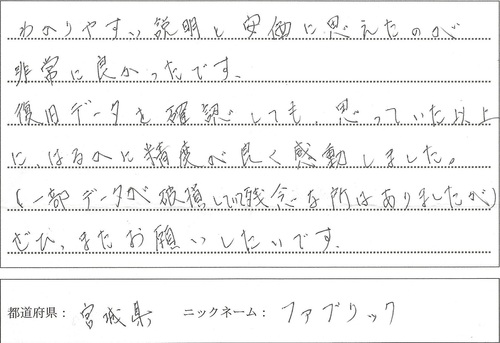 わかりやすい説明と安価に思えたのが
非常に良かったです。
復旧データを確認しても、思っていた以上
に、はるかに精度が良く感動しました。
(一部データが破損していて残念な所はありましたが)
ぜひ、またお願いしたいです。
都道府県: 宮城県 ニックネーム: ファブリック